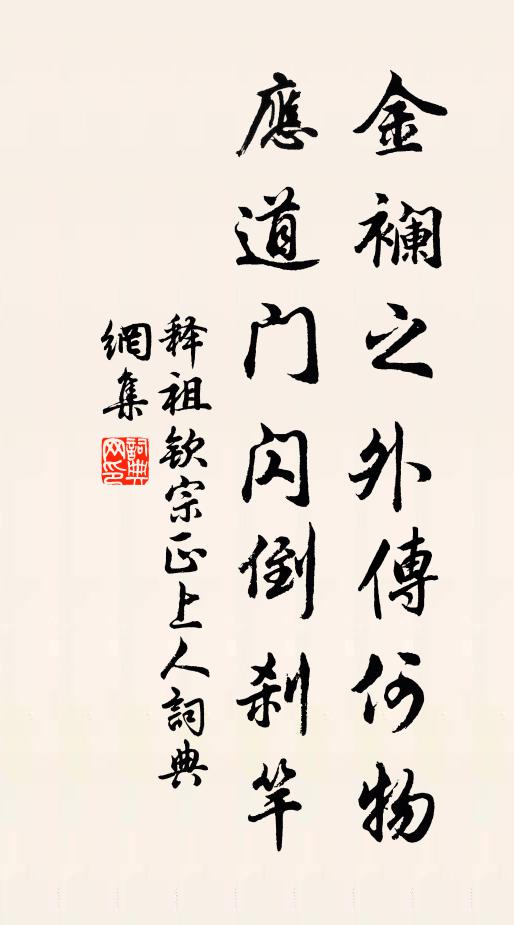 金襴之外傳何物
應道門闪倒刹竿
释祖欽宗正上人詞典
網集
詞典網印